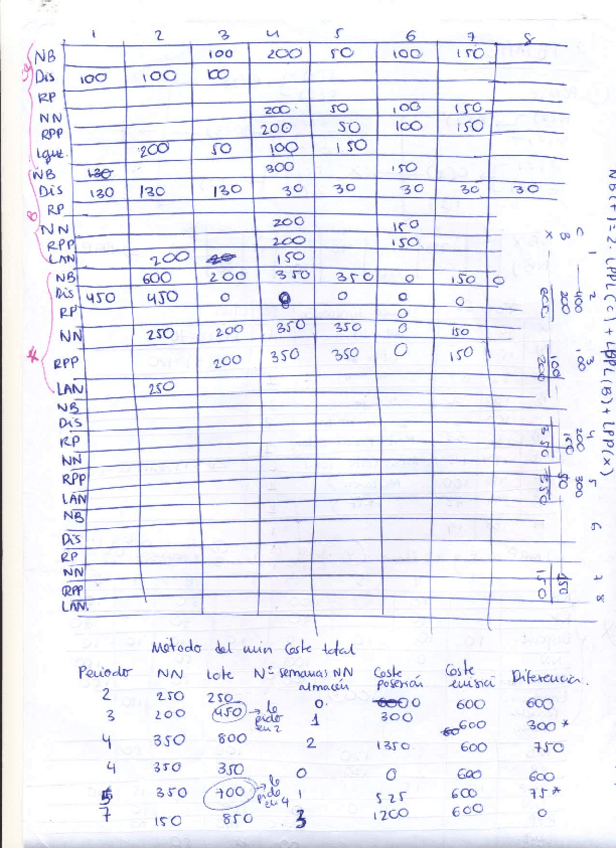 1 2 3 4 5 6 7 8
NB 100 200 50 100 150
Dis 100 100 100
RP
NN 200 50 100 150
RPP 200 50 100 150
200 50 100 150
NB 130 300 150
Dis 130 130 130 30 30 30 30 30
RP
NN 200 150
RPP 200 150
LAN 200 150
NB 600 200 350 350 0 150 0
Dis 450 450 0 0 0 0 0
RP 0
NN 250 200 350 350 0 150
RPP 200 350 350 0 150
LAN 250
NB
Dis
RP
NN
RPP
LAN
NB
Dis
RP
NN
RPP
LAN.
B
Método del min Coste total
Periodo NN Lote Nº semanas NN almacén Coste posesión Coste emisión Diferencia.
2 250 250 0 600 600
3 200 450 → lo pido en 2 1 300 600 300*
4 350 800 2 1350 600 750
4 350 350 0 0 600 600
5 350 700 → lo pido en 4 1 525 600 75*
7 150 850 3 1200 600 0